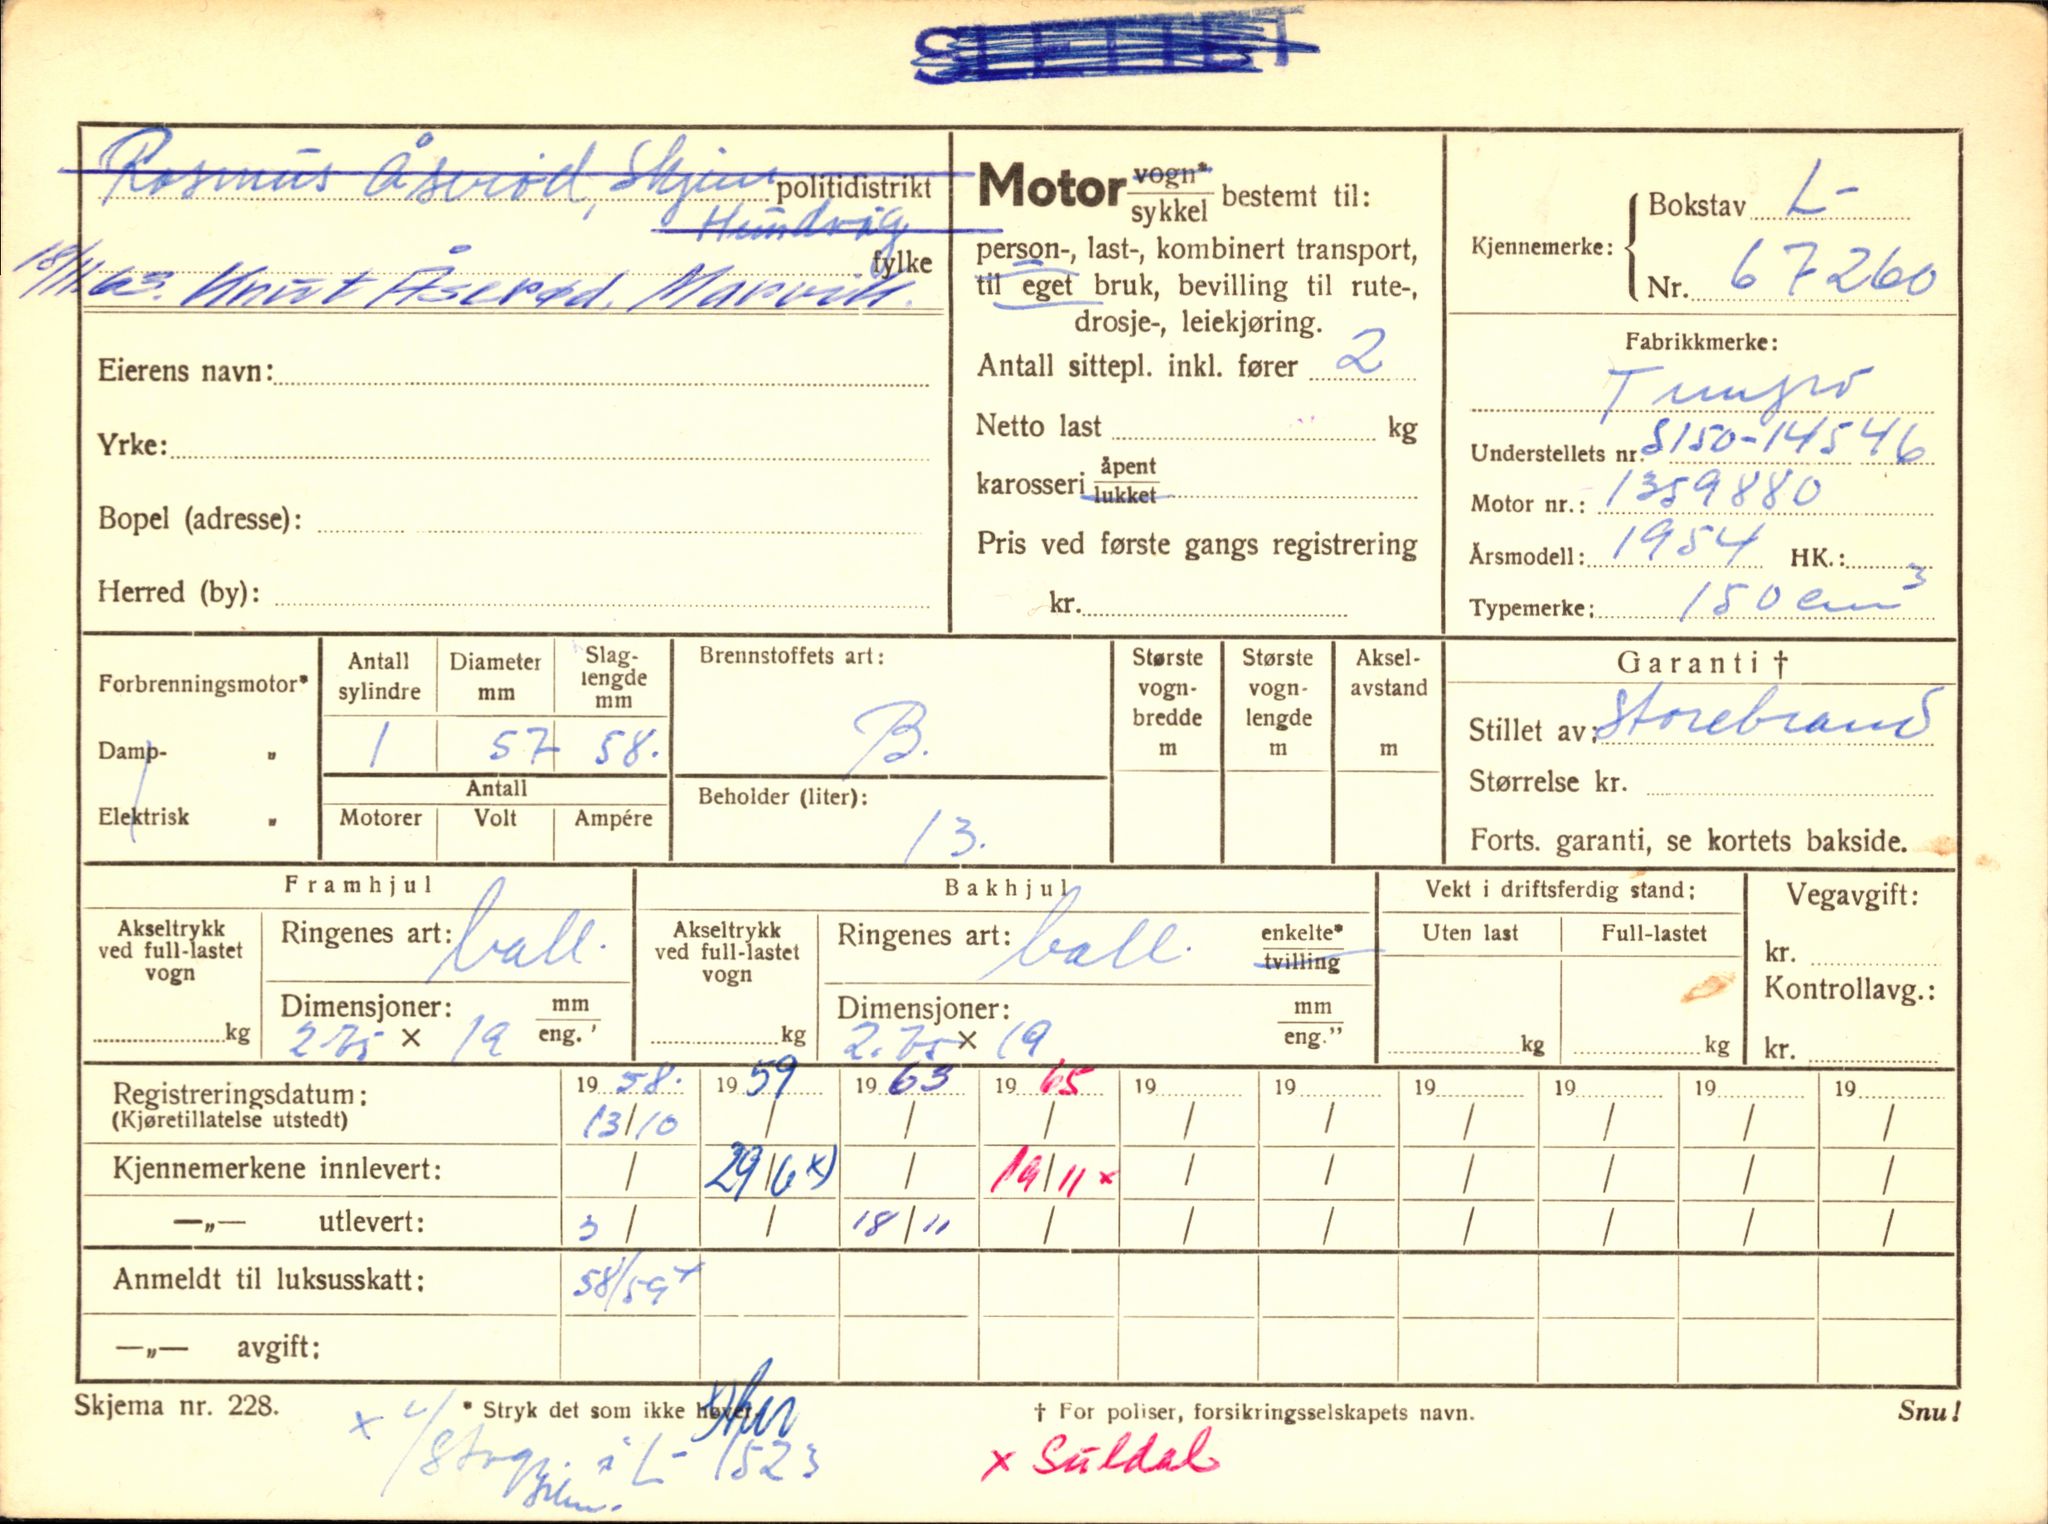 SLETTET
Rasmus Åserød, Skjern politidistrikt
Hundvåg
fylke
18/11 63. Knut Åserød. Marvik.
Eierens navn:
Yrke:
Bopel (adresse):
Herred (by):
Motor vogn* sykkel bestemt til:
person-, last-, kombinert transport,
til eget bruk, bevilling til rute-,
drosje-, leiekjøring.
Antall sittepl. inkl. fører 2
Netto last kg
karosseri åpent lukket
Pris ved første gangs registrering
kr.
Kjennemerke:
Bokstav L-
Nr. 67260
Fabrikkmerke:
Tempo
Understellets nr. S150-14546
Motor nr.: 1359880
Årsmodell: 1954 HK.:
Typemerke: 150 cm3
Forbrenningsmotor*
Damp- „
Elektrisk „
Antall sylindre Diameter mm Slag-lengde mm
1 57 58.
Antall
Motorer Volt Ampére
Brennstoffets art:
B.
Beholder (liter):
13.
Største vogn-bredde m
Største vogn-lengde m
Aksel-avstand m
Garanti †
Stillet av: Storebrand
Størrelse kr.
Forts. garanti, se kortets bakside.
Framhjul
Akseltrykk ved full-lastet vogn
kg
Ringenes art: ball.
Dimensjoner: mm eng.'
2.75 x 19
Bakhjul
Akseltrykk ved full-lastet vogn
kg
Ringenes art: ball. enkelte* tvilling
Dimensjoner: mm eng."
2.75 x 19
Vekt i driftsferdig stand:
Uten last Full-lastet
kg kg
Vegavgift:
kr.
Kontrollavg.:
kr.
Registreringsdatum: 19 58. 19 59 19 63 19 65 19 19 19 19 19 19
(Kjøretillatelse utstedt) 13/10 / / / / / / / / /
Kjennemerkene innlevert: / 29/6 x) / 19/11 x / / / / / /
—„— utlevert: 3/ / 18/11 / / / / / / /
Anmeldt til luksusskatt: 58/59 x
—„— avgift:
Skjema nr. 228. * Stryk det som ikke høver. † For poliser, forsikringsselskapets navn. Snu!
x L- 1523
x Suldal